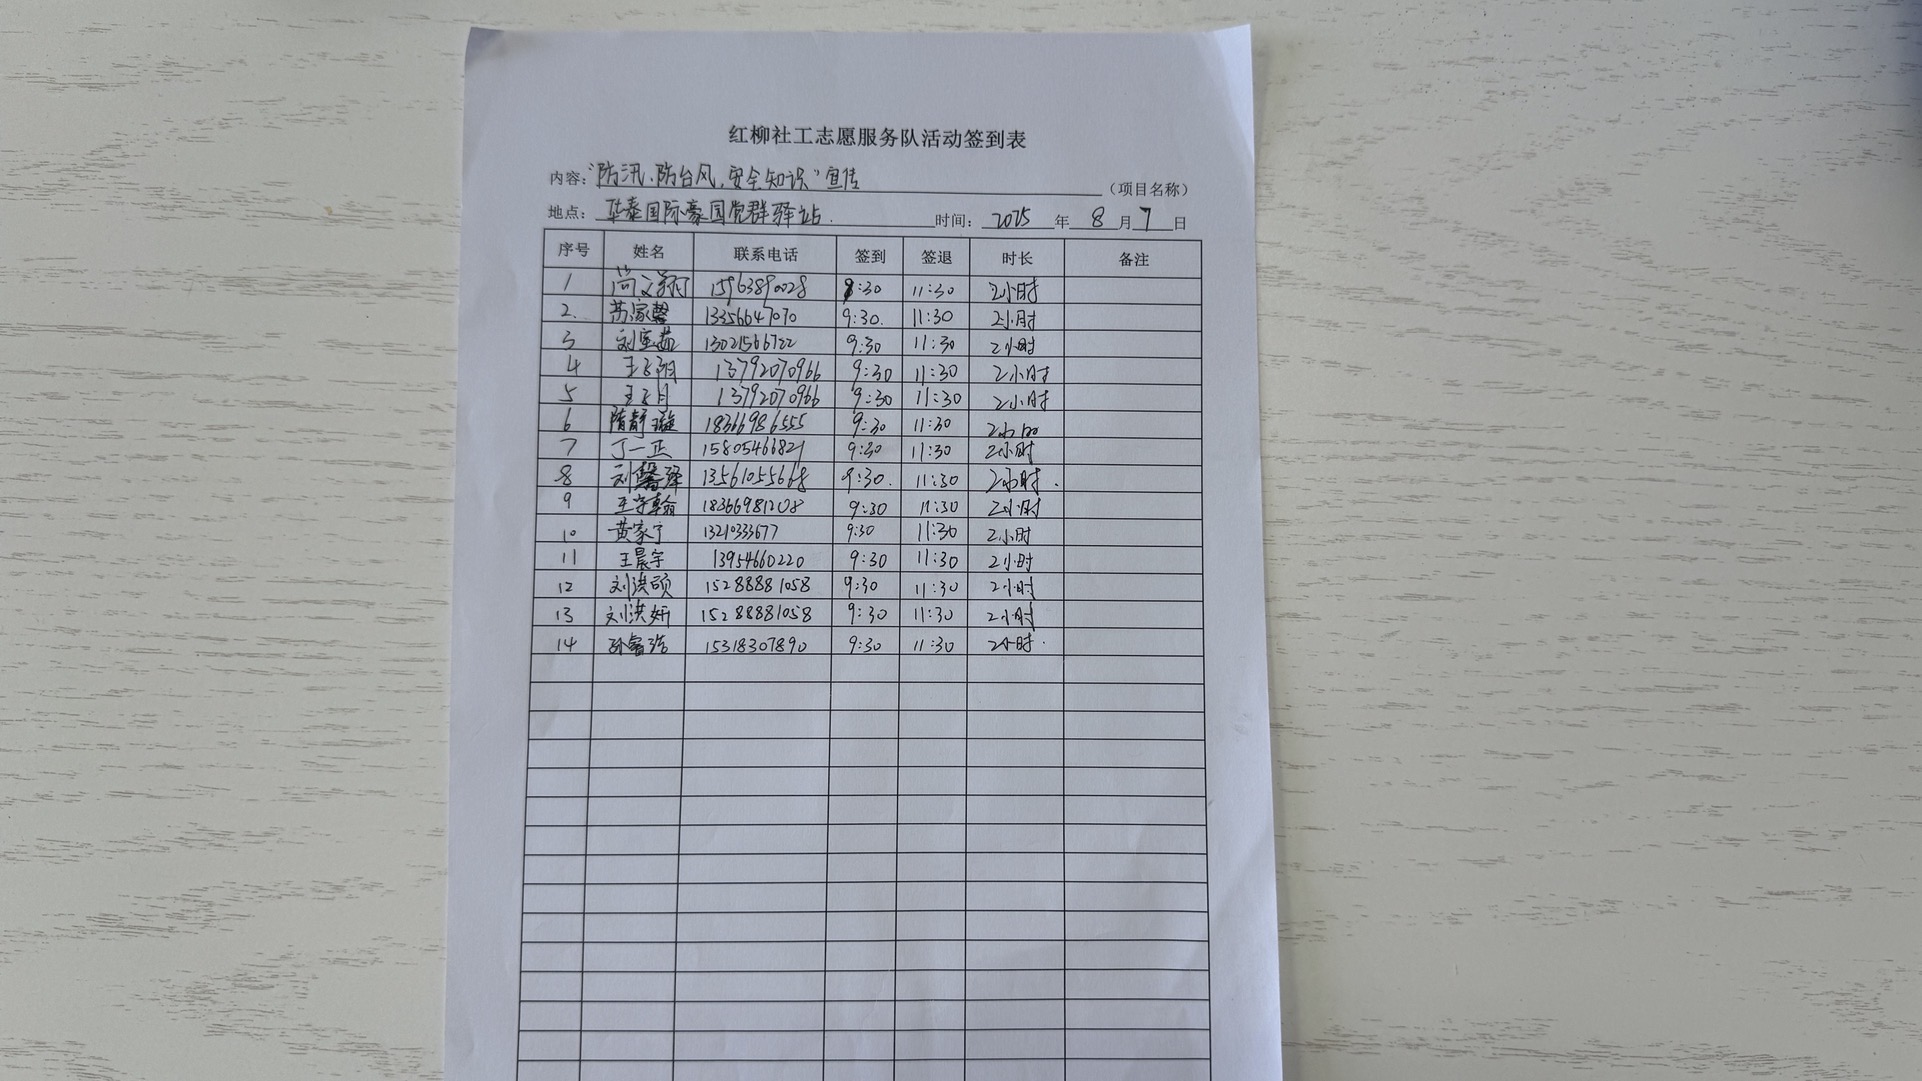 红柳社工志愿服务队活动签到表
内容：“防汛、防台风，安全知识”宣传（项目名称）
地点：华泰国际豪园党群驿站. 时间：2025年8月7日
序号 姓名 联系电话 签到 签退 时长 备注
1 尚文 15963890028 9:30 11:30 2小时
2. 苏家馨 13356647070 9:30. 11:30 2小时
3 刘室茹 13021566722 9:30 11:30 2小时
4 王 13792070966 9:30 11:30 2小时
5 王 13792070966 9:30 11:30 2小时
6 隋静璇 18366986555 9:30 11:30 2小时
7 丁一正 15805466821 9:30 11:30 2小时
8 刘馨泽 13561055668 9:30. 11:30 2小时.
9 王宇翰 18366981208 9:30 11:30 2小时
10 黄家宁 13210333677 9:30 11:30 2小时
11 王晨宇 13954660220 9:30 11:30 2小时
12 刘洪硕 15288881058 9:30 11:30 2小时
13 刘洪妍 15288881058 9:30 11:30 2小时
14 孙睿浩 15318307890 9:30 11:30 2小时.